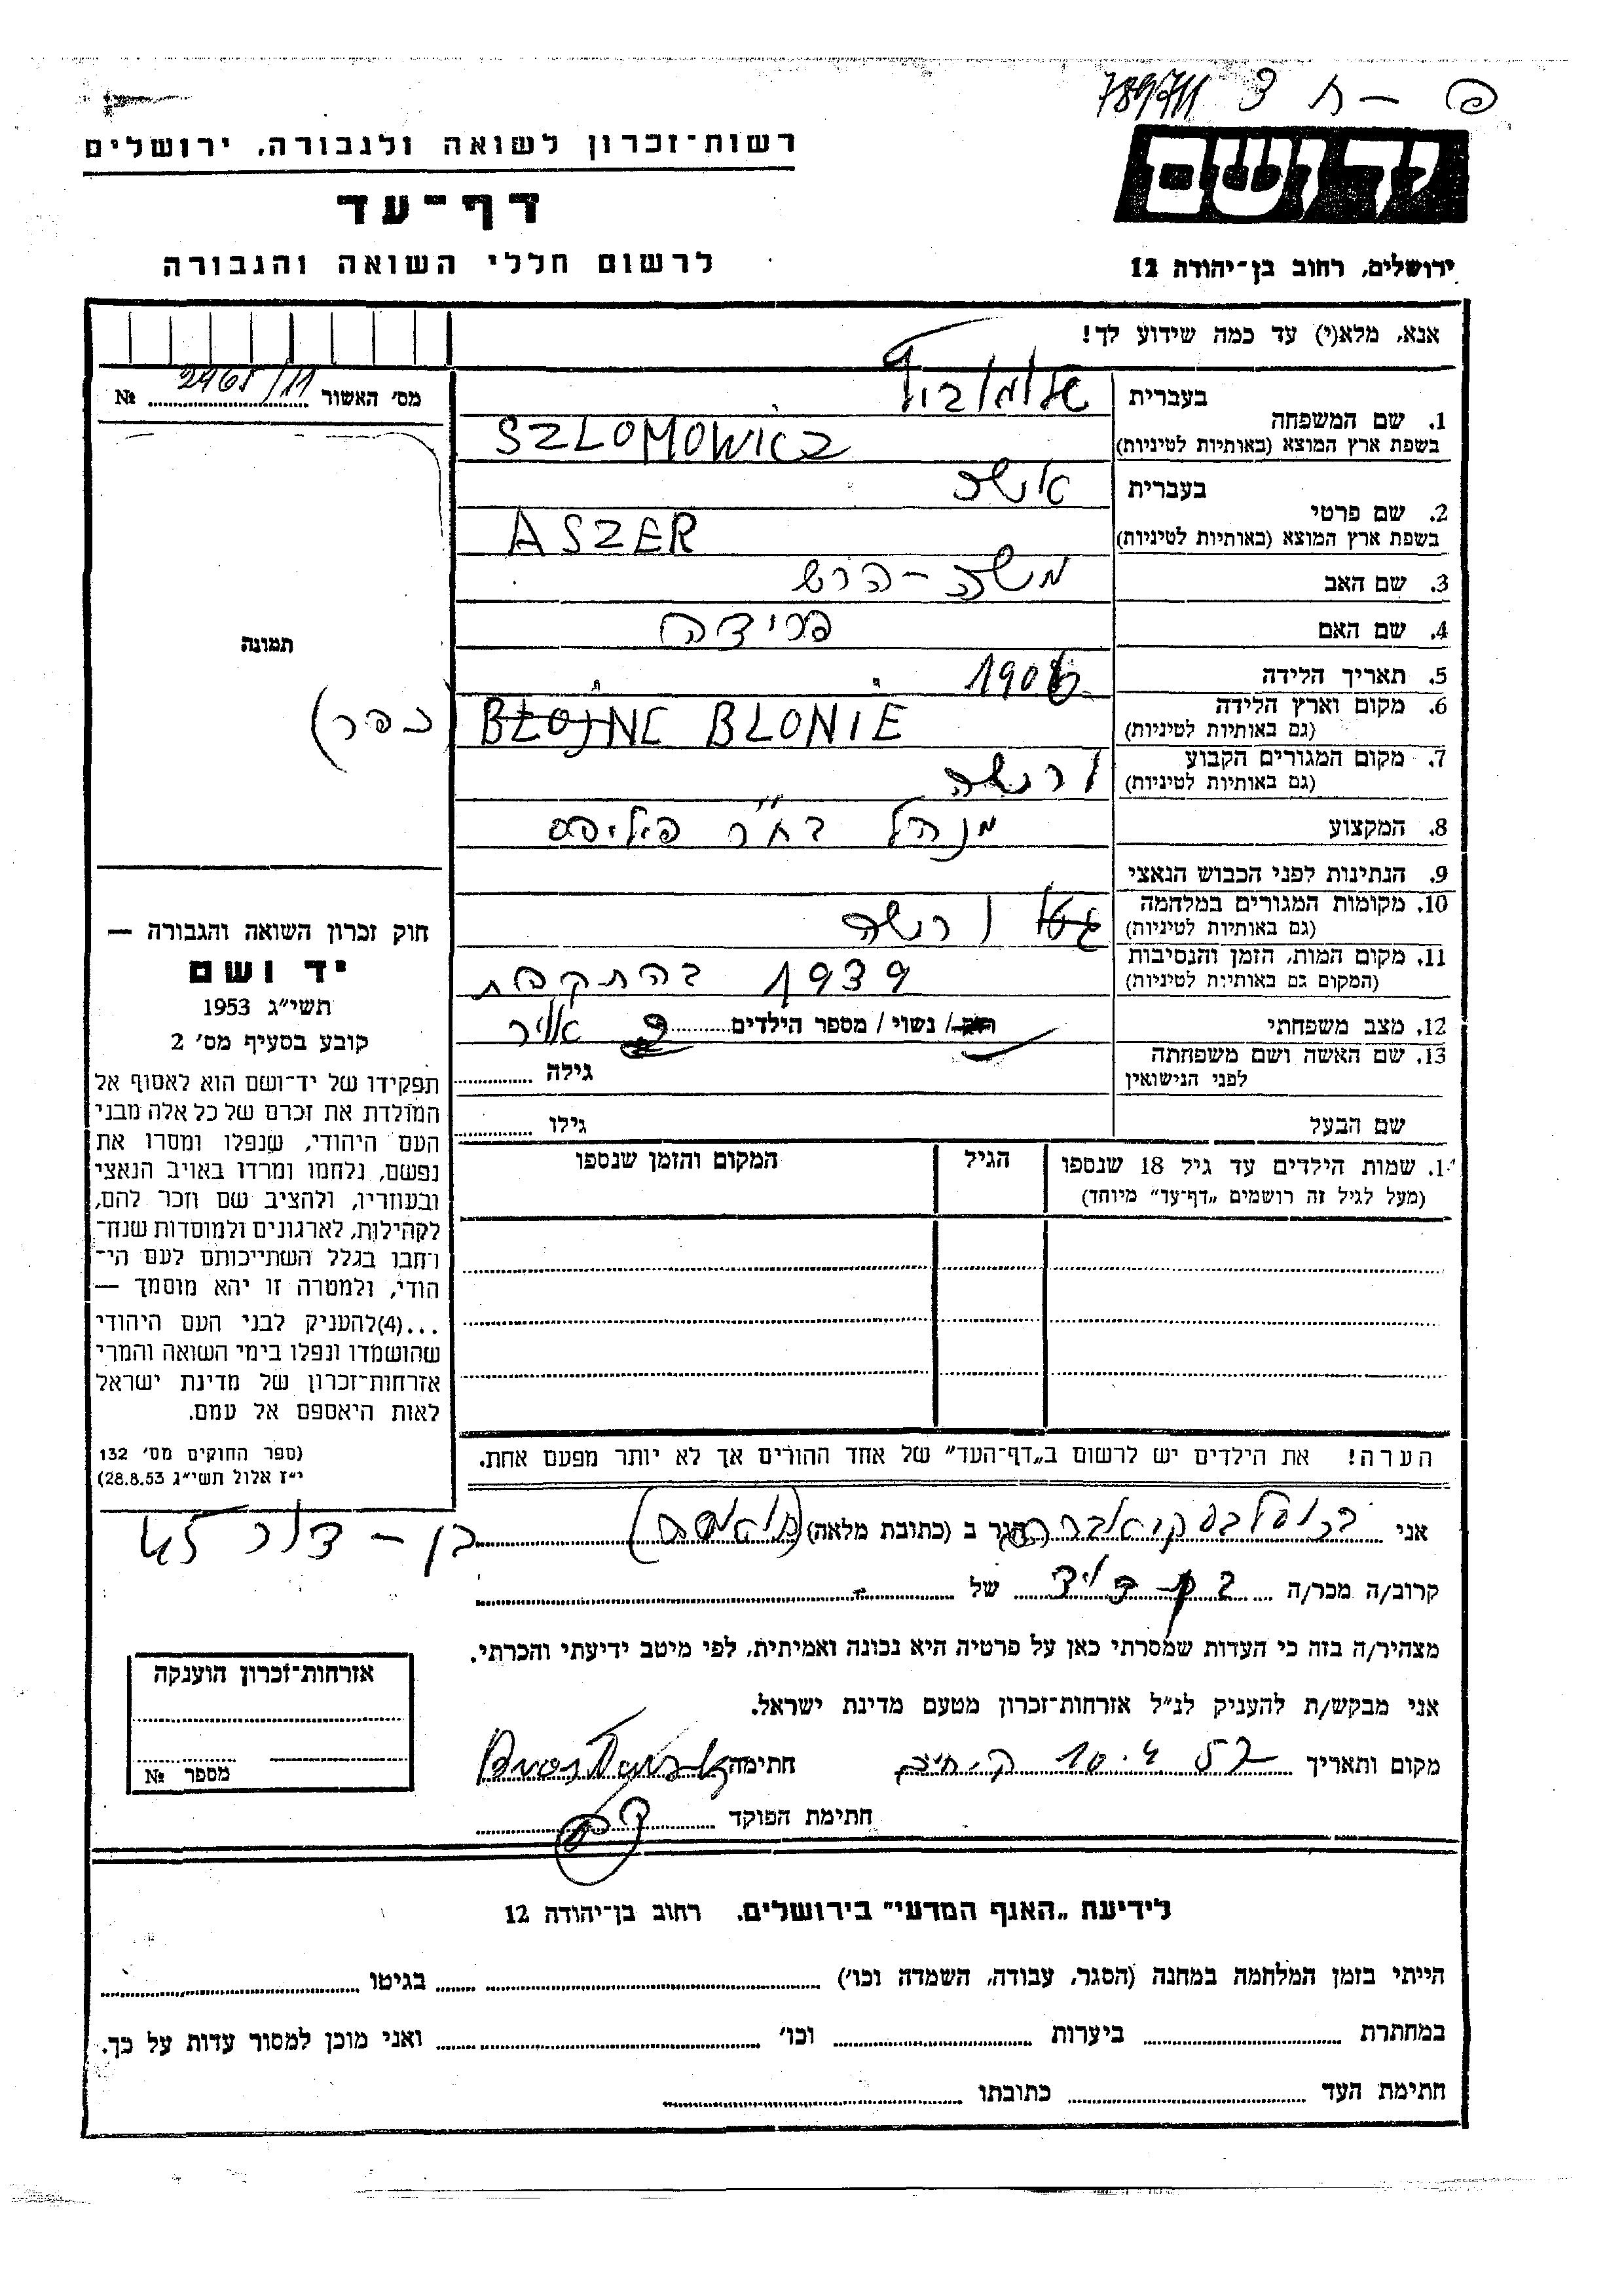 789711
יד ושם
ירושלים, רחוב בן־יהודה 12
רשות־זכרון לשואה ולגבורה, ירושלים
דף־עד
לרשום חללי השואה והגבורה
אנא, מלא(י) עד כמה שידוע לך!
מס׳ האשור № 2961/11
תמונה
1. שם המשפחה בעברית שלומוביץ
בשפת ארץ המוצא (באותיות לטיניות) SZLOMOWICZ
2. שם פרטי בעברית אושר
בשפת ארץ המוצא (באותיות לטיניות) ASZER
3. שם האב משה - הרש
4. שם האם פרידה
5. תאריך הלידה 1906
6. מקום וארץ הלידה (גם באותיות לטיניות) BŁOJNE BLONIE (כפר)
7. מקום המגורים הקבוע (גם באותיות לטיניות) ורשה
8. המקצוע מנהל בחר׳ פיליפס
9. הנתינות לפני הכבוש הנאצי
10. מקומות המגורים במלחמה (גם באותיות לטיניות) גטו ורשה
11. מקום המות, הזמן והנסיבות (המקום גם באותיות לטיניות) 1939 בהתקפת אויר
12. מצב משפחתי רווק / נשוי / מספר הילדים
13. שם האשה ושם משפחתה לפני הנישואין גילה
שם הבעל גילו
14. שמות הילדים עד גיל 18 שנספו (מעל לגיל זה רושמים „דף־עד״ מיוחד) הגיל המקום והזמן שנספו
הערה! את הילדים יש לרשום ב„דף־העד״ של אחד ההורים אך לא יותר מפעם אחת.
חוק זכרון השואה והגבורה —
יד ושם
תשי״ג 1953
קובע בסעיף מס׳ 2
תפקידו של יד־ושם הוא לאסוף אל
המולדת את זכרם של כל אלה מבני
העם היהודי, שנפלו ומסרו את
נפשם, נלחמו ומרדו באויב הנאצי
ובעוזריו, ולהציב שם וזכר להם,
לקהילות, לארגונים ולמוסדות שנח־
רחבו בגלל השתייכותם לעם הי־
הודי, ולמטרה זו יהא מוסמך —
...(4)להעניק לבני העם היהודי
שהושמדו ונפלו בימי השואה והמרי
אזרחות־זכרון של מדינת ישראל
לאות היאספם אל עמם.
(ספר החוקים מס׳ 132
י״ז אלול תשי״ג 28.8.53)
אני הגר ב (כתובת מלאה)
קרוב/ה מכר/ה בן דוד של
מצהיר/ה בזה כי העדות שמסרתי כאן על פרטיה היא נכונה ואמיתית, לפי מיטב ידיעתי והכרתי.
אני מבקש/ת להעניק לנ״ל אזרחות־זכרון מטעם מדינת ישראל.
מקום ותאריך 10.4.57 חתימה
חתימת הפוקד
אזרחות־זכרון הוענקה
מספר №
לידיעת „האגף המדעי״ בירושלים, רחוב בן־יהודה 12
הייתי בזמן המלחמה במחנה (הסגר, עבודה, השמדה וכו׳) בגיטו
במחתרת ביערות וכו׳ ואני מוכן למסור עדות על כך.
חתימת העד כתובתו